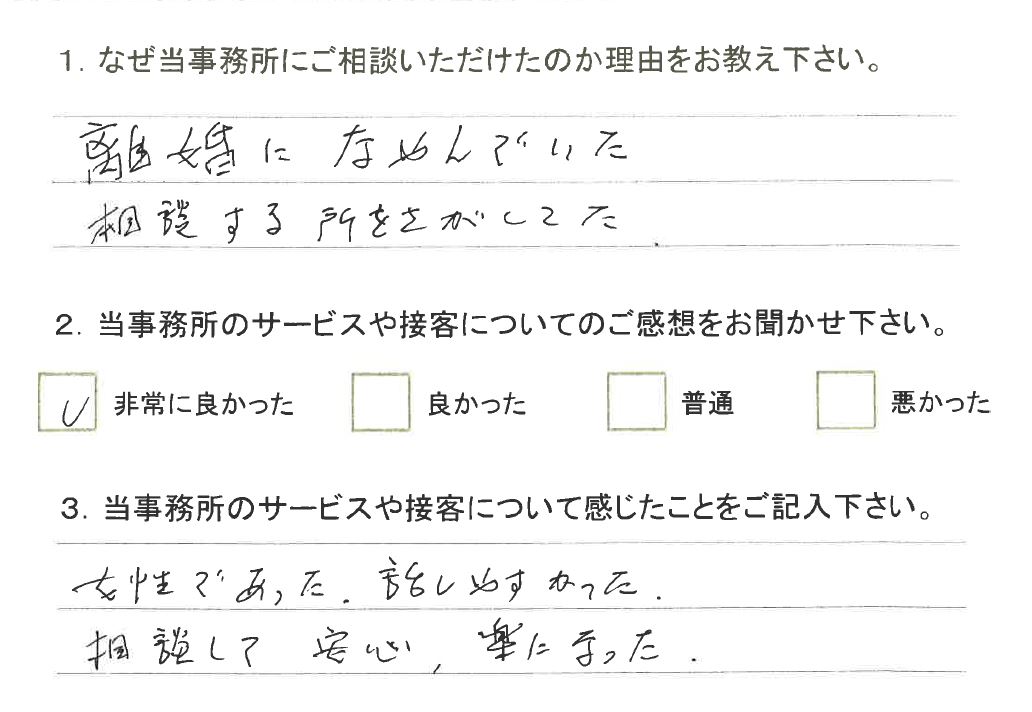 1. なぜ当事務所にご相談いただけたのか理由をお教え下さい。
離婚になやんでいた
相談する所をさがしてた
2. 当事務所のサービスや接客についてのご感想をお聞かせ下さい。
非常に良かった 良かった 普通 悪かった
3. 当事務所のサービスや接客について感じたことをご記入下さい。
女性であった. 話しやすかった.
相談して 安心, 楽になった.